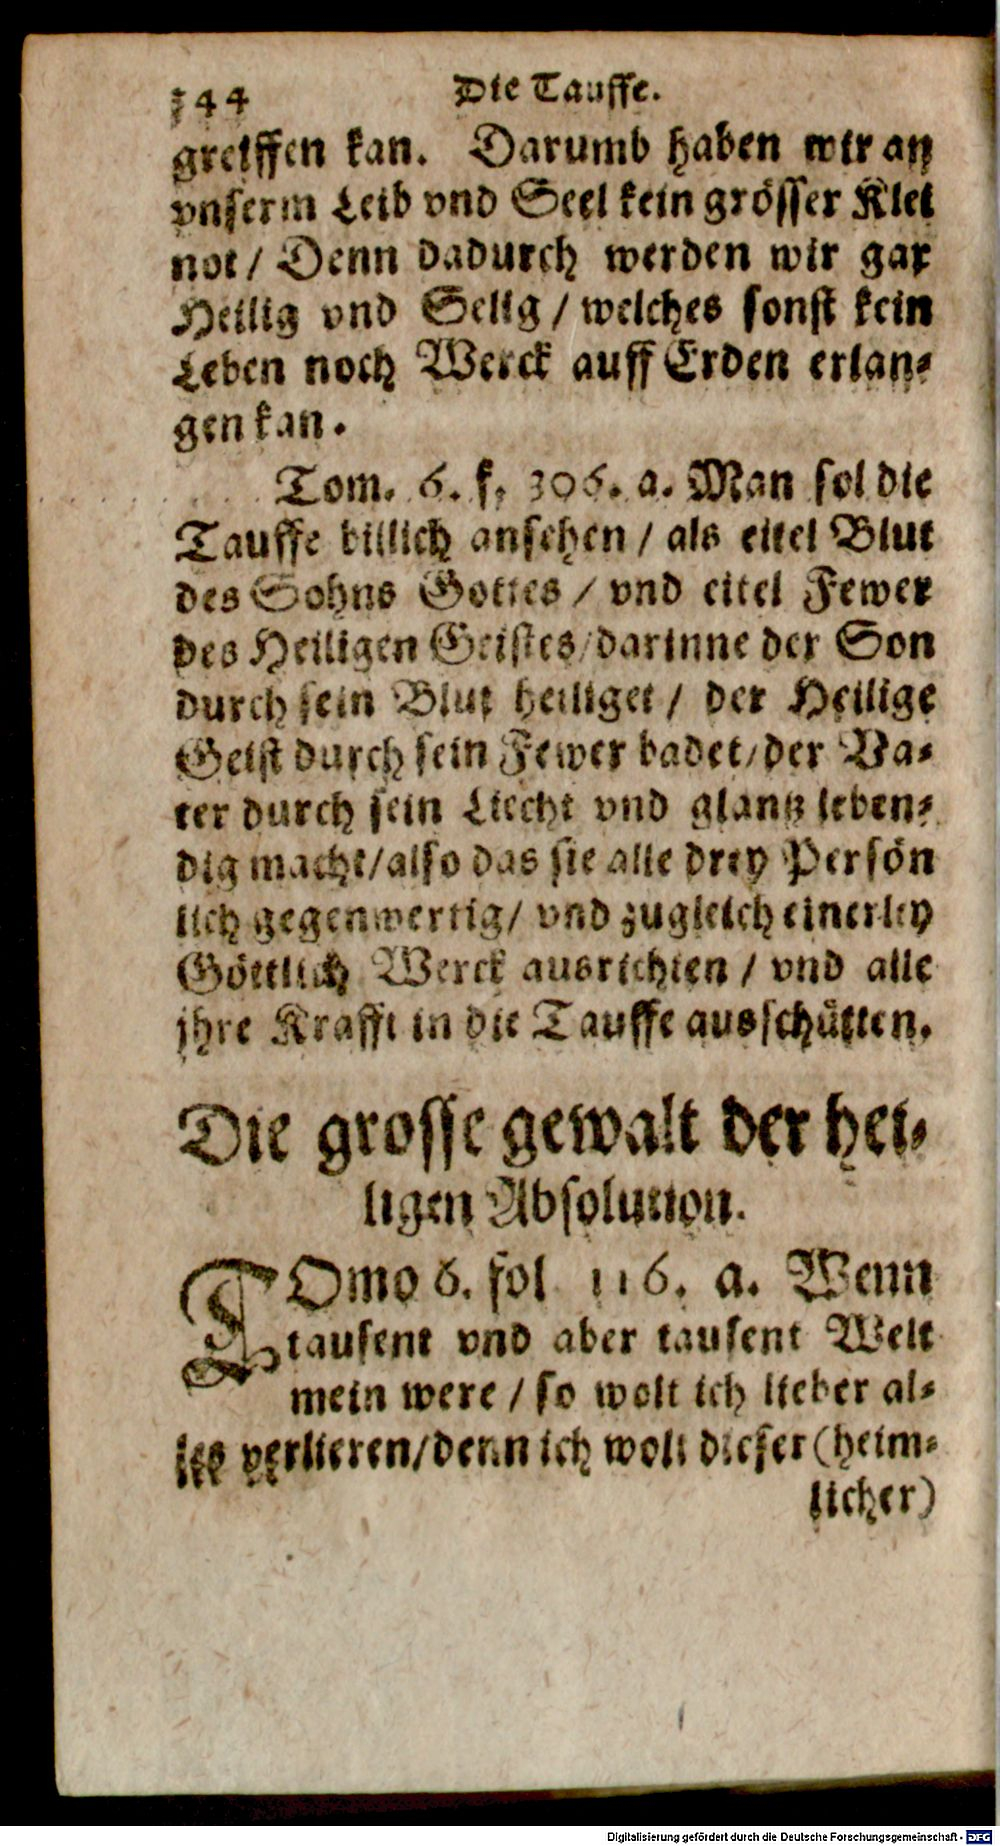 344 Die Tauffe.
greiffen kan. Darumb haben wir an
vnserm Leib vnd Seel kein grösser Klei
not / Denn dadurch werden wir gar
Heilig vnd Selig / welches sonst kein
Leben noch Werck auff Erden erlan-
gen kan.
Tom. 6. f. 306. a. Man sol die
Tauffe billich ansehen / als eitel Blut
des Sohns Gottes / vnd eitel Fewer
des Heiligen Geistes / darinne der Son
durch sein Blut heiliget / der Heilige
Geist durch sein Fewer badet / der Va-
ter durch sein Liecht vnd glantz leben-
dig macht / also das sie alle drey Persön
lich gegenwertig / vnd zugleich einerley
Göttlich Werck ausrichten / vnd alle
jhre Krafft in die Tauffe ausschütten.
Die grosse gewalt der hei-
ligen Absolution.
TOmo 6. fol 116. a. Wenn
tausent vnd aber tausent Welt
mein were / so wolt ich lieber al-
les verlieren / denn ich wolt dieser (heim-
licher)
Digitalisierung gefördert durch die Deutsche Forschungsgemeinschaft - DFG